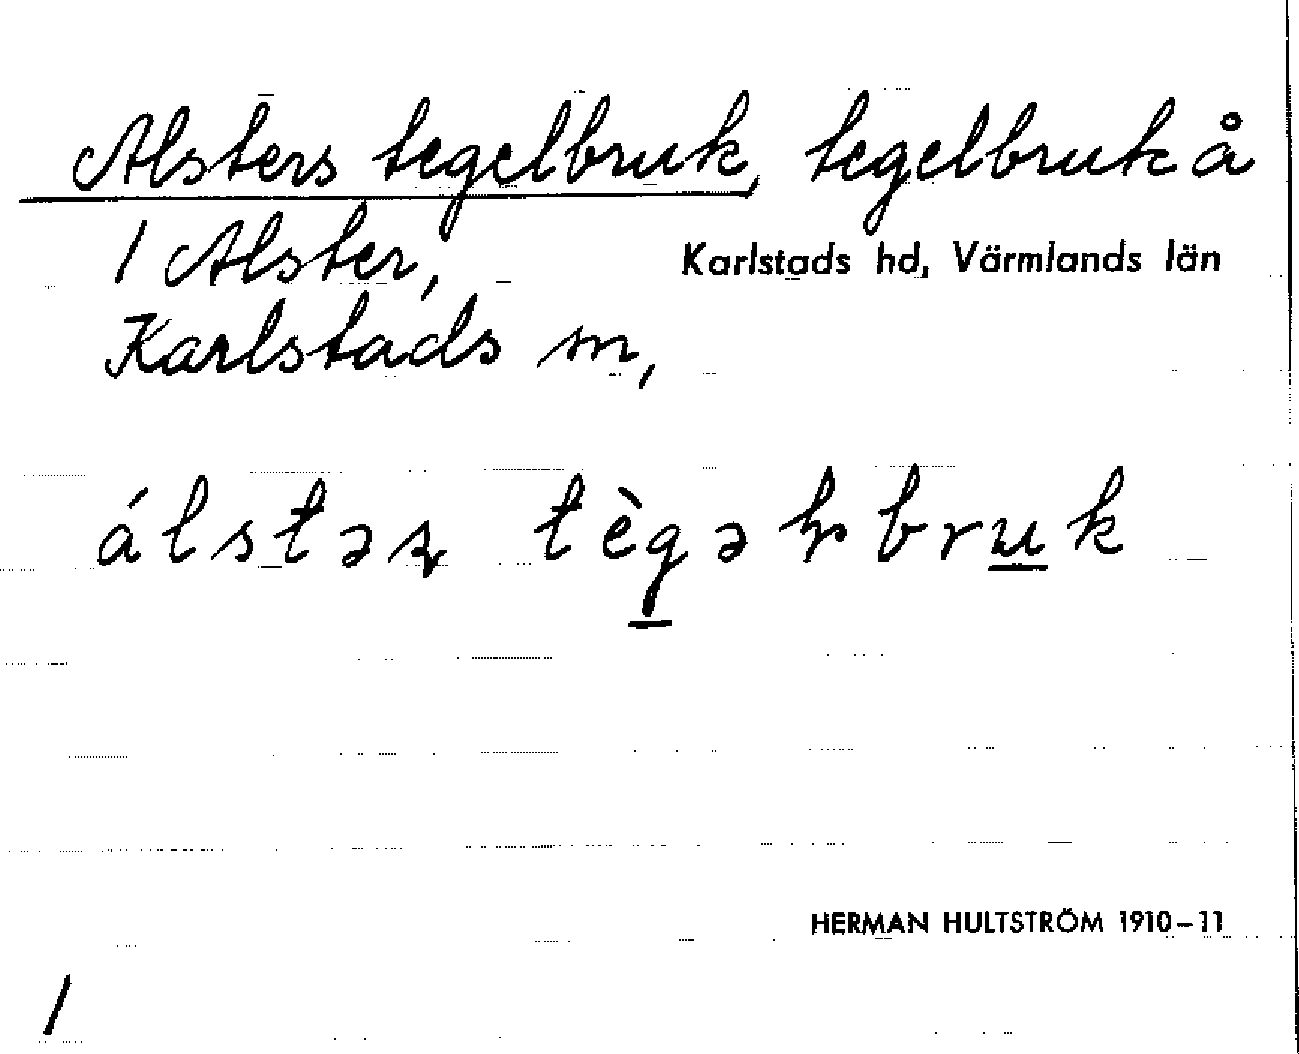 Alsters tegelbruk, tegelbruk å
1 Alster, Karlstads hd, Värmlands län
Karlstads sn,
álstəʂ tègəɽbruk
HERMAN HULTSTRÖM 1910–11
/